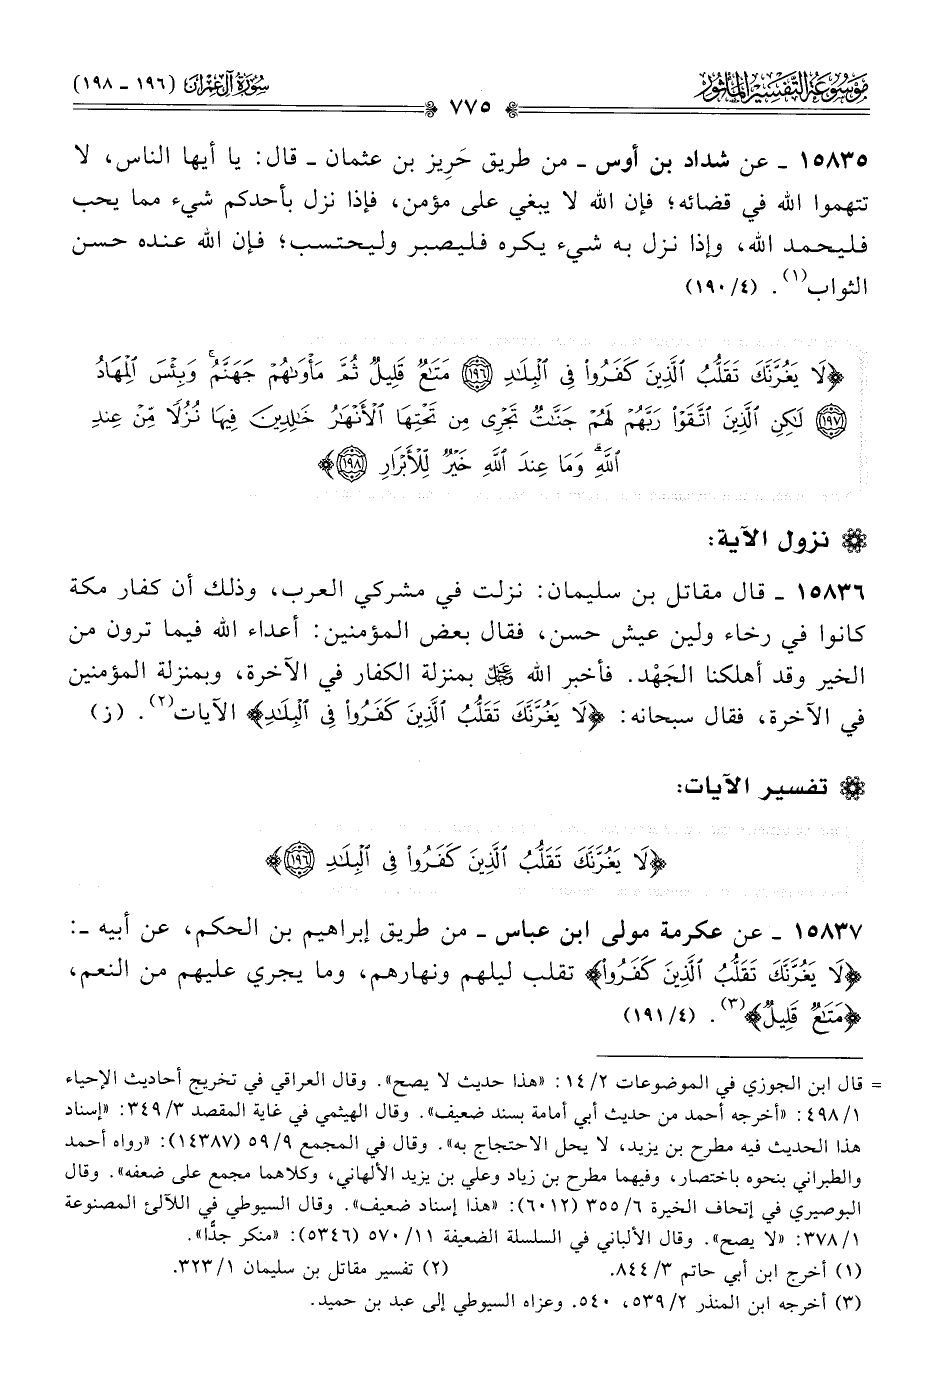 موسوعة التفسير المأثور
سورة آل عمران (١٩٦ - ١٩٨)
٧٧٥
١٥٨٣٥ ـ عن شداد بن أوس ـ من طريق حَرِيز بن عثمان ـ قال: يا أيها الناس، لا
تتهموا الله في قضائه؛ فإن الله لا يبغي على مؤمن، فإذا نزل بأحدكم شيء مما يحب
فليحمد الله، وإذا نزل به شيء يكره فليصبر وليحتسب؛ فإن الله عنده حسن
الثواب(١). (١٩٠/٤)
﴿لَا يَغُرَّنَّكَ تَقَلُّبُ ٱلَّذِينَ كَفَرُوا۟ فِى ٱلْبِلَٰدِ ١٩٦ مَتَٰعٌ قَلِيلٌ ثُمَّ مَأْوَىٰهُمْ جَهَنَّمُ ۚ وَبِئْسَ ٱلْمِهَادُ
١٩٧ لَٰكِنِ ٱلَّذِينَ ٱتَّقَوْا۟ رَبَّهُمْ لَهُمْ جَنَّٰتٌ تَجْرِى مِن تَحْتِهَا ٱلْأَنْهَٰرُ خَٰلِدِينَ فِيهَا نُزُلًا مِّنْ عِندِ
ٱللَّهِ ۗ وَمَا عِندَ ٱللَّهِ خَيْرٌ لِّلْأَبْرَارِ ١٩٨﴾
نزول الآية:
١٥٨٣٦ ـ قال مقاتل بن سليمان: نزلت في مشركي العرب، وذلك أن كفار مكة
كانوا في رخاء ولين عيش حسن، فقال بعض المؤمنين: أعداء الله فيما ترون من
الخير وقد أهلكنا الجَهْد. فأخبر الله ﷿ بمنزلة الكفار في الآخرة، وبمنزلة المؤمنين
في الآخرة، فقال سبحانه: ﴿لَا يَغُرَّنَّكَ تَقَلُّبُ ٱلَّذِينَ كَفَرُوا۟ فِى ٱلْبِلَٰدِ﴾ الآيات(٢). (ز)
تفسير الآيات:
﴿لَا يَغُرَّنَّكَ تَقَلُّبُ ٱلَّذِينَ كَفَرُوا۟ فِى ٱلْبِلَٰدِ ١٩٦﴾
١٥٨٣٧ ـ عن عكرمة مولى ابن عباس ـ من طريق إبراهيم بن الحكم، عن أبيه ـ:
﴿لَا يَغُرَّنَّكَ تَقَلُّبُ ٱلَّذِينَ كَفَرُوا۟﴾ تقلب ليلهم ونهارهم، وما يجري عليهم من النعم،
﴿مَتَٰعٌ قَلِيلٌ﴾(٣). (١٩١/٤)
= قال ابن الجوزي في الموضوعات ١٤/٢: «هذا حديث لا يصح». وقال العراقي في تخريج أحاديث الإحياء
٤٩٨/١: «أخرجه أحمد من حديث أبي أمامة بسند ضعيف». وقال الهيثمي في غاية المقصد ٣٤٩/٣: «إسناد
هذا الحديث فيه مطرح بن يزيد، لا يحل الاحتجاج به». وقال في المجمع ٥٩/٩ (١٤٣٨٧): «رواه أحمد
والطبراني بنحوه باختصار، وفيهما مطرح بن زياد وعلي بن يزيد الألهاني، وكلاهما مجمع على ضعفه». وقال
البوصيري في إتحاف الخيرة ٣٥٥/٦ (٦٠١٢): «هذا إسناد ضعيف». وقال السيوطي في اللآلئ المصنوعة
٣٧٨/١: «لا يصح». وقال الألباني في السلسلة الضعيفة ٥٧٠/١١ (٥٣٤٦): «منكر جدًّا».
(١) أخرج ابن أبي حاتم ٨٤٤/٣. (٢) تفسير مقاتل بن سليمان ٣٢٣/١.
(٣) أخرجه ابن المنذر ٥٣٩/٢، ٥٤٠. وعزاه السيوطي إلى عبد بن حميد.